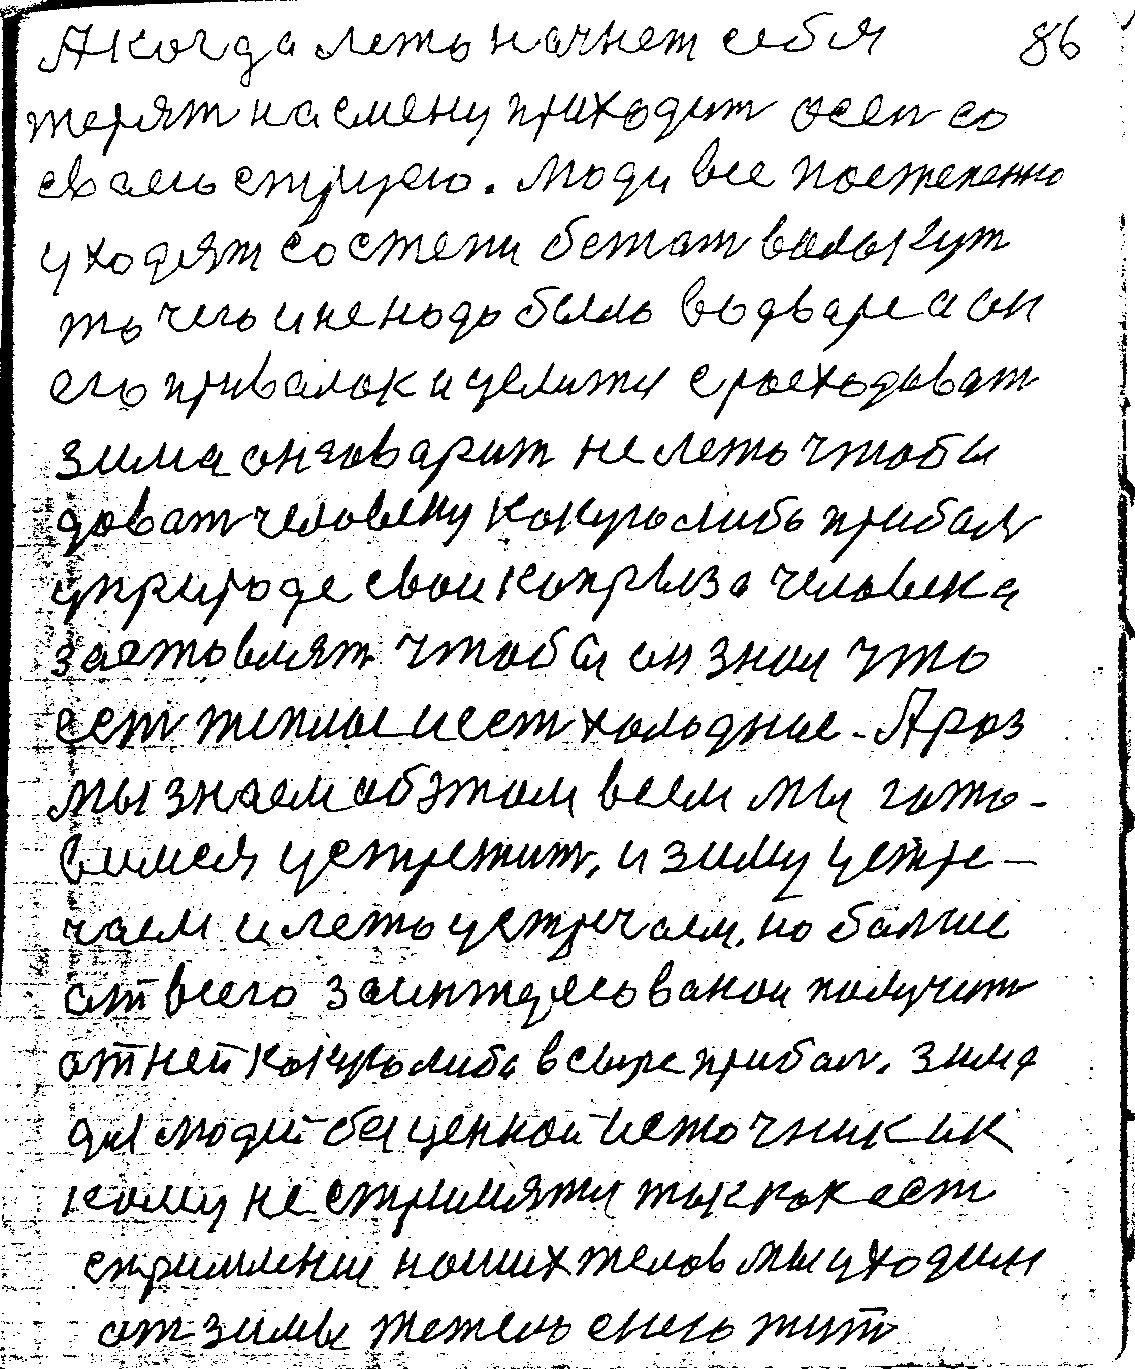 А когда лето начнет себя 86
терят на смену приходит осен со
сваею струею. Люди все постепенно
уходят со степи бегат
то чего и не нодо было в одваре а он
его привалок и целити с росходоват
зима он говарит не лето чтобы
доват человеку кокуго либо прибал
у природе свои копрызо человека
заетовлят чтобы он знал что
ест теплое и ест холодное. А роз
мы знаем об этом всем мы гото-
вимся устретит, и зиму устре-
чаем и лето устречаем, но болше
от всего заинтересованои получит
от ней кокуго либо в сыре прибал. зима
для людей бесценной источник и к
кому не стримяти ток кок ест
стримление ноших телов мы уходим
от зимы тежело снего жит